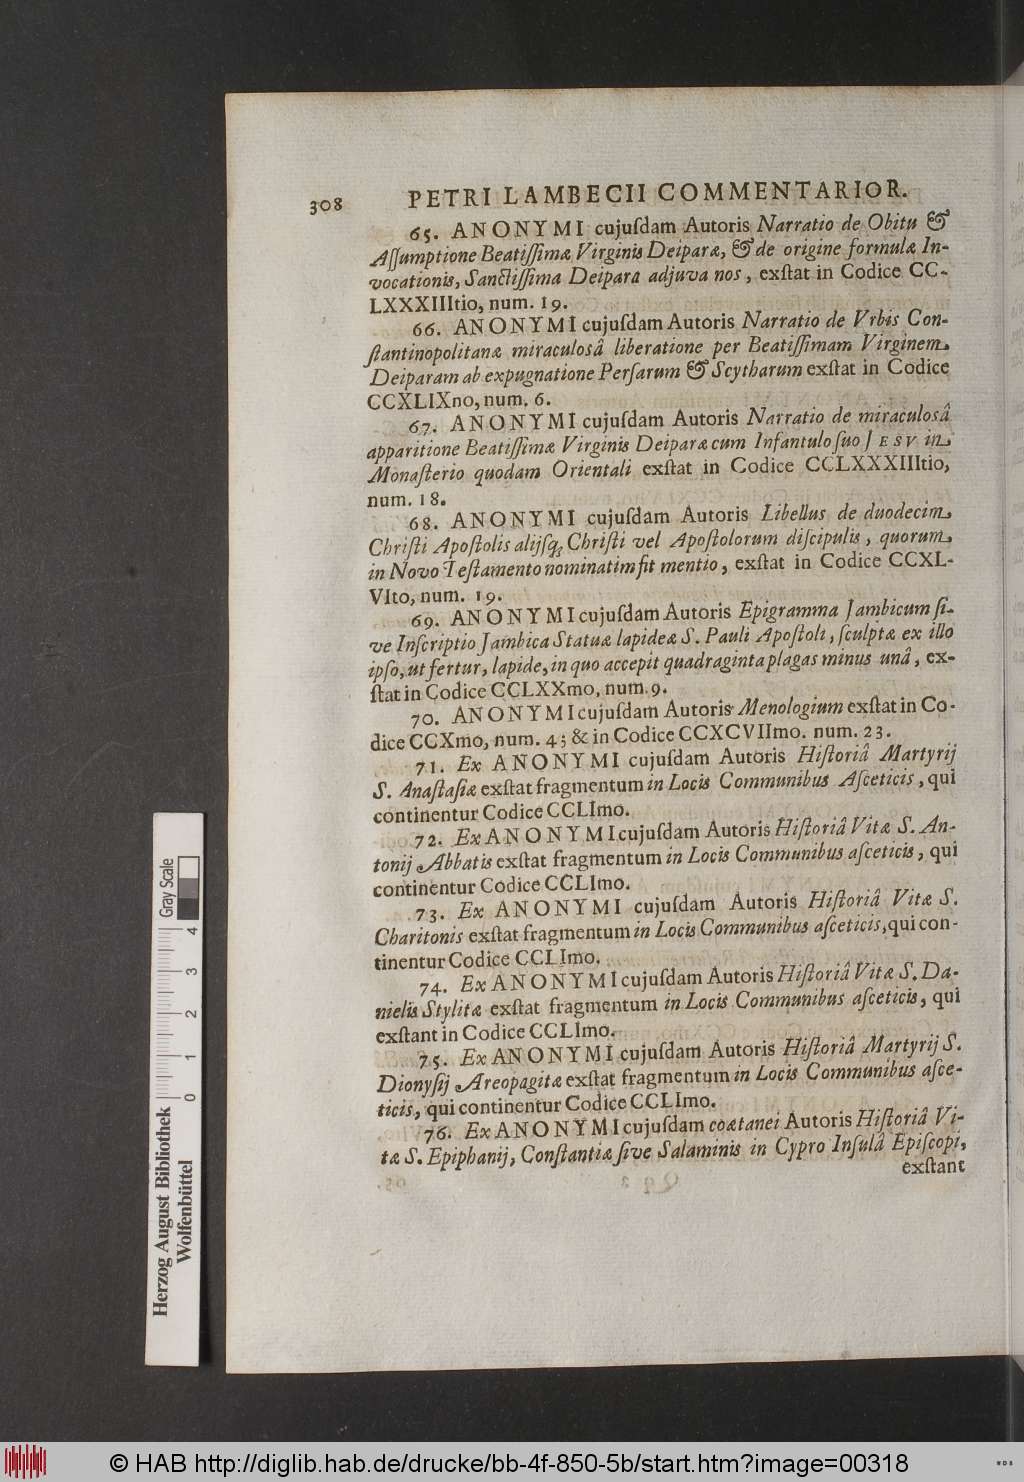 308 PETRI LAMBECII COMMENTARIOR.
65. ANONYMI cujuſdam Autoris Narratio de Obitu &
Aſſumptione Beatiſſimæ Virginis Deiparæ, & de origine formulæ In-
vocationis, Sanctiſſima Deipara adjuva nos, exſtat in Codice CC-
LXXXIIItio, num. 19.
66. ANONYMI cujuſdam Autoris Narratio de Vrbis Con-
ſtantinopolitanæ miraculosâ liberatione per Beatiſſimam Virginem
Deiparam ab expugnatione Perſarum & Scytharum exſtat in Codice
CCXLIXno, num. 6.
67. ANONYMI cujuſdam Autoris Narratio de miraculosâ
apparitione Beatiſſimæ Virginis Deiparæ cum Infantulo ſuo JESV in
Monaſterio quodam Orientali exſtat in Codice CCLXXXIIItio,
num. 18.
68. ANONYMI cujuſdam Autoris Libellus de duodecim
Chriſti Apoſtolis alijſq; Chriſti vel Apoſtolorum diſcipulis, quorum
in Novo Teſtamento nominatim fit mentio, exſtat in Codice CCXL-
VIto, num. 19.
69. ANONYMI cujuſdam Autoris Epigramma Jambicum ſi-
ve Inſcriptio Jambica Statuæ lapideæ S. Pauli Apoſtoli, ſculptæ ex illo
ipſo, ut fertur, lapide, in quo accepit quadraginta plagas minus unâ, ex-
ſtat in Codice CCLXXmo, num. 9.
70. ANONYMI cujuſdam Autoris Menologium exſtat in Co-
dice CCXmo, num. 4; & in Codice CCXCVIImo. num. 23.
71. Ex ANONYMI cujuſdam Autoris Hiſtoriâ Martyrij
S. Anaſtaſiæ exſtat fragmentum in Locis Communibus Aſceticis, qui
continentur Codice CCLImo.
72. Ex ANONYMI cujuſdam Autoris Hiſtoriâ Vitæ S. An-
tonij Abbatis exſtat fragmentum in Locis Communibus aſceticis, qui
continentur Codice CCLImo.
73. Ex ANONYMI cujuſdam Autoris Hiſtoriâ Vitæ S.
Charitonis exſtat fragmentum in Locis Communibus aſceticis, qui con-
tinentur Codice CCLImo.
74. Ex ANONYMI cujuſdam Autoris Hiſtoriâ Vitæ S. Da-
nielis Stylitæ exſtat fragmentum in Locis Communibus aſceticis, qui
exſtant in Codice CCLImo.
75. Ex ANONYMI cujuſdam Autoris Hiſtoriâ Martyrij S.
Dionyſij Areopagitæ exſtat fragmentum in Locis Communibus aſce-
ticis, qui continentur Codice CCLImo.
76. Ex ANONYMI cujuſdam coætanei Autoris Hiſtoriâ Vi-
tæ S. Epiphanij, Conſtantiæ ſive Salaminis in Cypro Inſulâ Epiſcopi,
exſtant
Herzog August Bibliothek
Wolfenbüttel
0 1 2 3 4
Gray Scale
© HAB http://diglib.hab.de/drucke/bb-4f-850-5b/start.htm?image=00318